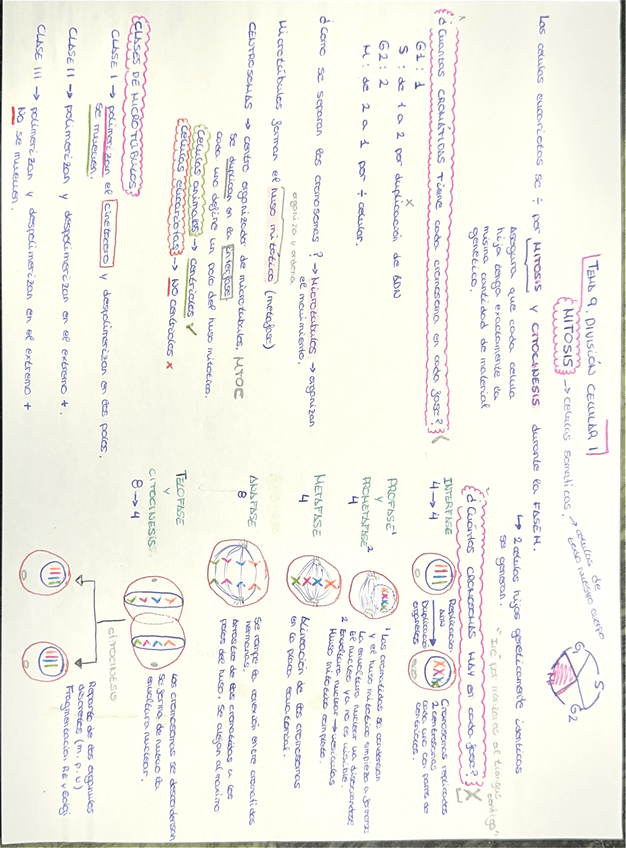 TEMA 9, DIVISIÓN CELULAR I
MITOSIS → células somáticas. → células de
todo nuestro cuerpo
G1 S G2 M
Las células eucariotas se ÷ por MITOSIS y CITOCINESIS durante la FASE M.
asegura que cada célula
hija tenga exactamente la
misma cantidad de material
genético.
↳ 2 células hijas genéticamente idénticas
se generan.
¿Cuántas CROMÁTIDAS tiene cada cromosoma en cada fase?
G1: 1
S: de 1 a 2 por duplicación de ADN
G2: 2
M: de 2 a 1 por ÷ celular.
¿Cómo se separan los cromosomas? → Microtúbulos → organizan
el movimiento.
organiza y ordena
Microtúbulos forman el huso mitótico (metafase)
CENTROSOMAS → centro organizador de microtúbulos. MTOC
Se duplican en la interfase
cada uno define un polo del huso mitótico.
Células animales → centriolos ✓
Células eucariotas → NO centriolos x
CLASES DE MICROTÚBULOS
CLASE I → polimerizan el cinetocoro y despolimerizan en los polos.
se mueven.
CLASE II → polimerizan y despolimerizan en el extremo +.
CLASE III → polimerizan y despolimerizan en el extremo +
No se mueven.
¿Cuántos CROMOSOMAS HAY en cada fase? X
INTERFASE
4 → 4
Replicación
ADN
Duplicación
orgánulos
Cromosomas replicados
2 centrosomas
cada uno con pares de
centriolos.
PROFASE¹
y
PROMETAFASE²
4
¹ Las cromátidas se condensan
y el huso mitótico empieza a formarse
La envoltura nuclear va disociándose
El nucleolo ya no es visible.
2 Envoltura nuclear → vesículas
Huso mitótico completo.
METAFASE
4
Alineación de los cromosomas
en la placa ecuatorial.
ANAFASE
8
Se rompe la cohesión entre cromátidas
hermanas.
Arrastre de las cromátidas a los
polos del huso. Se alejan al máximo
TELOFASE
y
CITOCINESIS
8 → 4
Los cromosomas se descondensan
Se forma de nuevo la
envoltura nuclear.
CITOCINESIS
Reparto de los orgánulos
Fragmentación RE y Golgi